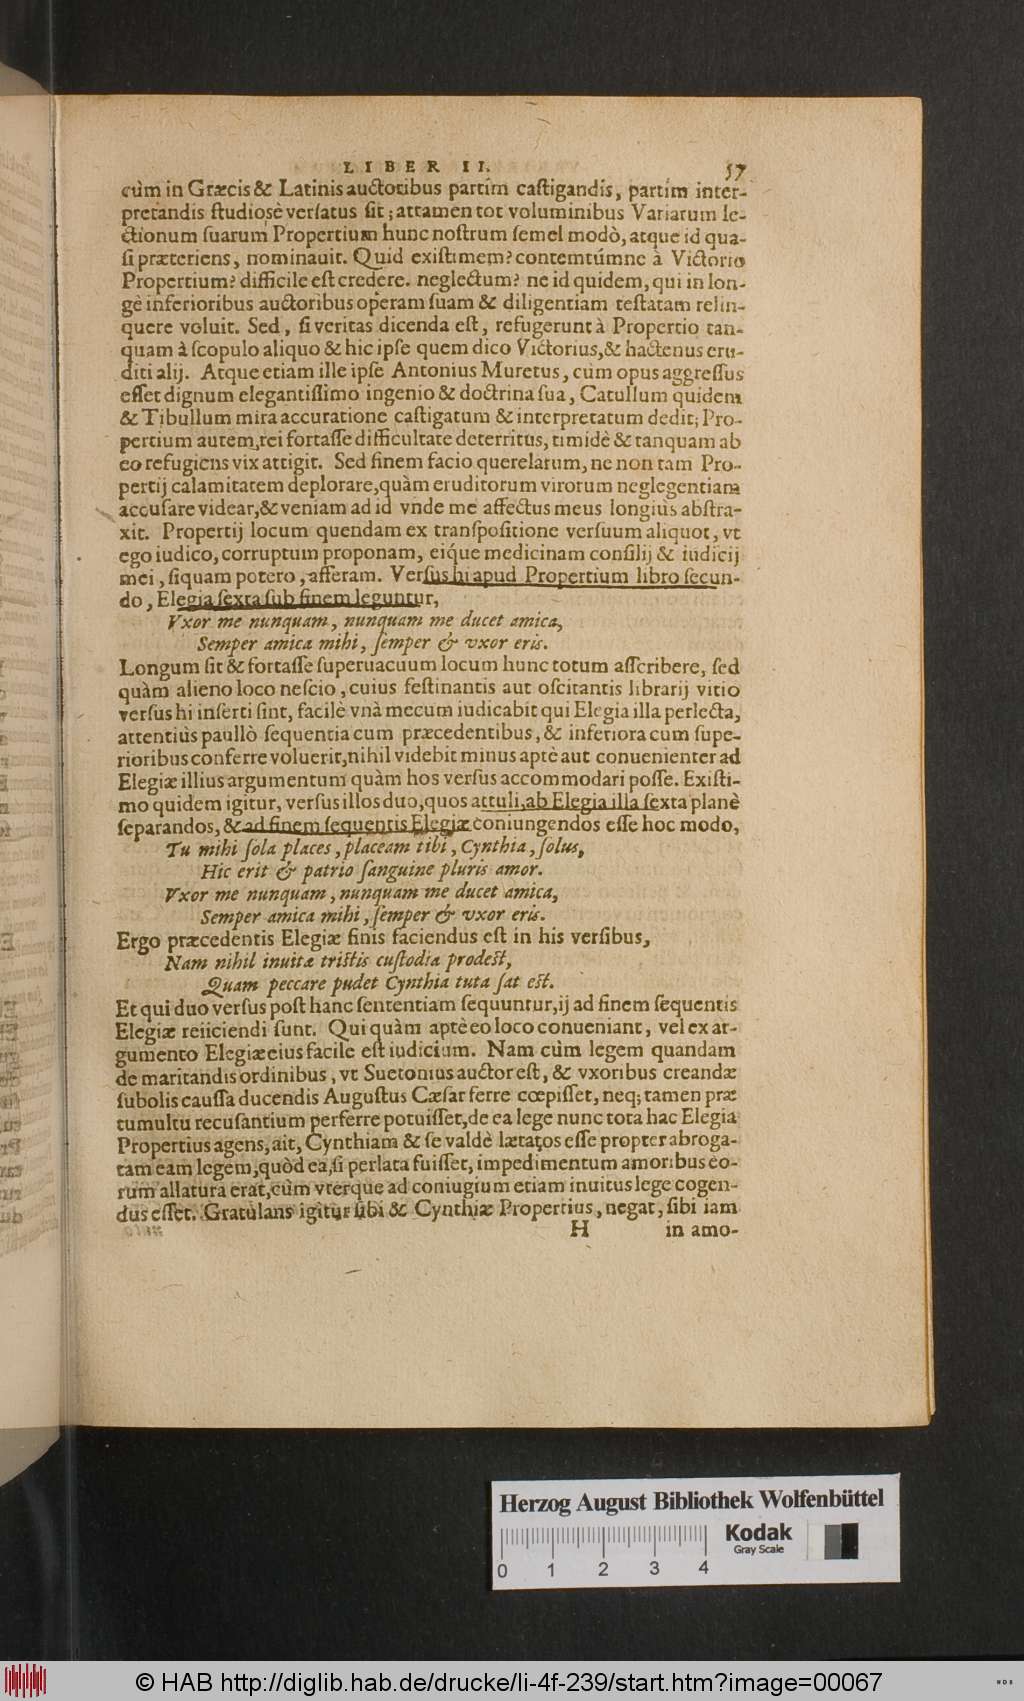 LIBER II. 57
cùm in Græcis & Latinis auctoribus partim castigandis, partim inter-
pretandis studiosè versatus sit; attamen tot voluminibus Variarum le-
ctionum suarum Propertium hunc nostrum semel modò, atque id qua-
si præteriens, nominauit. Quid existimem? contemtúmne à Victorio
Propertium? difficile est credere. neglectum? ne id quidem, qui in lon-
gè inferioribus auctoribus operam suam & diligentiam testatam relin-
quere voluit. Sed, si veritas dicenda est, refugerunt à Propertio tan-
quam à scopulo aliquo & hic ipse quem dico Victorius, & hactenus eru-
diti alij. Atque etiam ille ipse Antonius Muretus, cùm opus aggressus
esset dignum elegantissimo ingenio & doctrina sua, Catullum quidem
& Tibullum mira accuratione castigatum & interpretatum dedit; Pro-
pertium autem, rei fortasse difficultate deterritus, timidè & tanquam ab
eo refugiens vix attigit. Sed finem facio querelarum, ne non tam Pro-
pertij calamitatem deplorare, quàm eruditorum virorum neglegentiam
accusare videar, & veniam ad id vnde me affectus meus longiùs abstra-
xit. Propertij locum quendam ex transpositione versuum aliquot, vt
ego iudico, corruptum proponam, eíque medicinam consilij & iudicij
mei, siquam potero, afferam. Versus hi apud Propertium libro secun-
do, Elegia sexta sub finem leguntur,
Vxor me nunquam, nunquam me ducet amica,
Semper amica mihi, semper & vxor eris.
Longum sit & fortasse superuacuum locum hunc totum asscribere, sed
quàm alieno loco nescio, cuius festinantis aut oscitantis librarij vitio
versus hi inserti sint, facilè vnà mecum iudicabit qui Elegia illa perlecta,
attentiùs paullò sequentia cum præcedentibus, & inferiora cum supe-
rioribus conferre voluerit, nihil videbit minus aptè aut conuenienter ad
Elegiæ illius argumentum quàm hos versus accommodari posse. Existi-
mo quidem igitur, versus illos duo, quos attuli, ab Elegia illa sexta planè
separandos, & ad finem sequentis Elegiæ coniungendos esse hoc modo,
Tu mihi sola places, placeam tibi, Cynthia, solus,
Hic erit & patrio sanguine pluris amor.
Vxor me nunquam, nunquam me ducet amica,
Semper amica mihi, semper & vxor eris.
Ergo præcedentis Elegiæ finis faciendus est in his versibus,
Nam nihil inuitæ tristis custodia prodest,
Quam peccare pudet Cynthia tuta sat est.
Et qui duo versus post hanc sententiam sequuntur, ij ad finem sequentis
Elegiæ reiiciendi sunt. Qui quàm aptè eo loco conueniant, vel ex ar-
gumento Elegiæ eius facile est iudicium. Nam cùm legem quandam
de maritandis ordinibus, vt Suetonius auctor est, & vxoribus creandæ
subolis caussa ducendis Augustus Cæsar ferre cœpisset, neq; tamen præ
tumultu recusantium perferre potuisset, de ea lege nunc tota hac Elegia
Propertius agens, ait, Cynthiam & se valdè lætatos esse propter abroga-
tam eam legem, quòd ea, si perlata fuisset, impedimentum amoribus eo-
rum allatura erat, cùm vterque ad coniugium etiam inuitus lege cogen-
dus esset. Gratulans igitur sibi & Cynthiæ Propertius, negat, sibi iam
H in amo-
Herzog August Bibliothek Wolfenbüttel
Kodak
Gray Scale
0 1 2 3 4
© HAB http://diglib.hab.de/drucke/li-4f-239/start.htm?image=00067